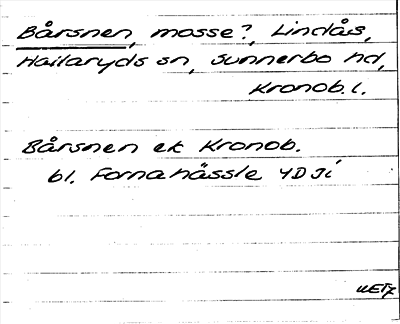 Bårsnen, mosse?, Lindås,
Hallaryds sn, Sunnerbo hd,
Kronob. l.
Bårsnen ek Kronob.
bl. Fornahässle 4D 3i